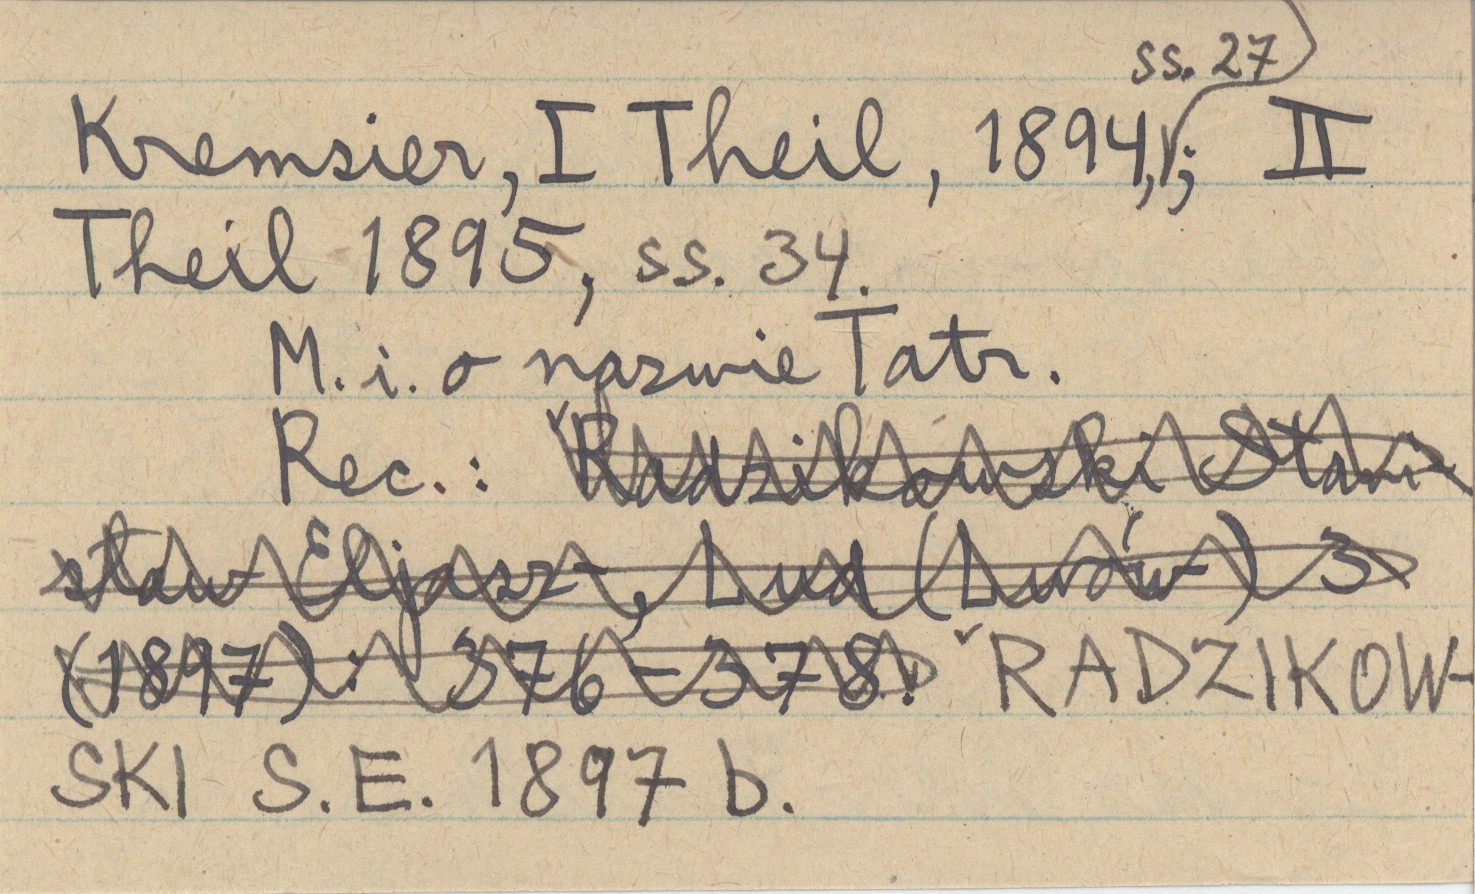 ss. 27
Kremsier, I Theil, 1894, ; II
Theil 1895, ss. 34.
M. i. o nazwie Tatr.
Rec.: Radzikowski Stani
sław Eljasz-, Lud (Lwów) 3
(1897): 376-378. RADZIKOW-
SKI S. E. 1897 b.